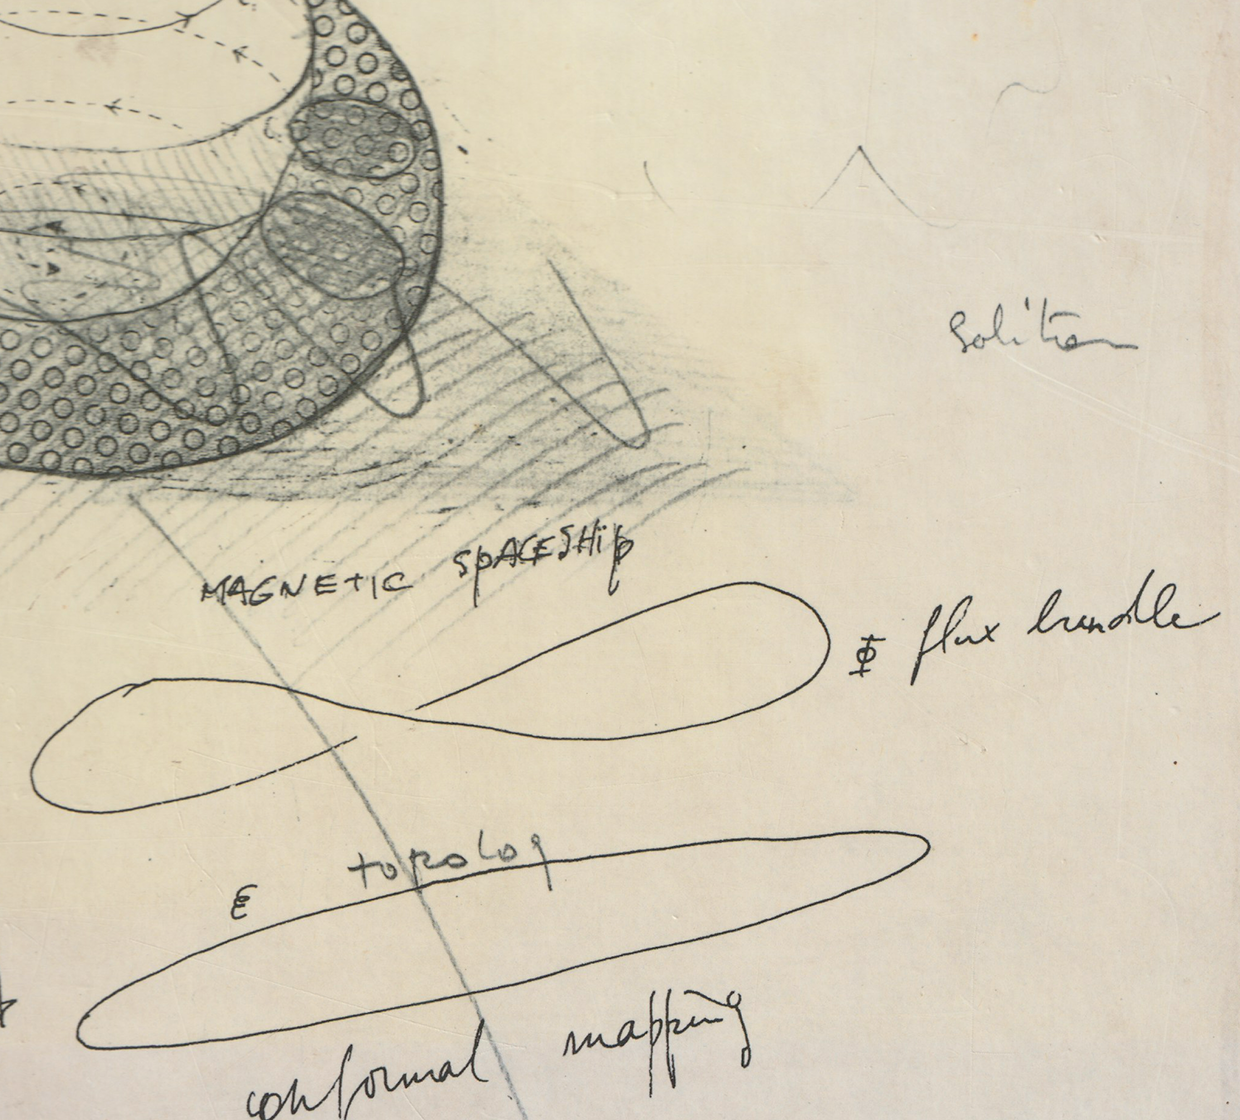 soliton
MAGNETIC SPACESHIP
Φ flux bundle
topolog
ε
conformal mapping